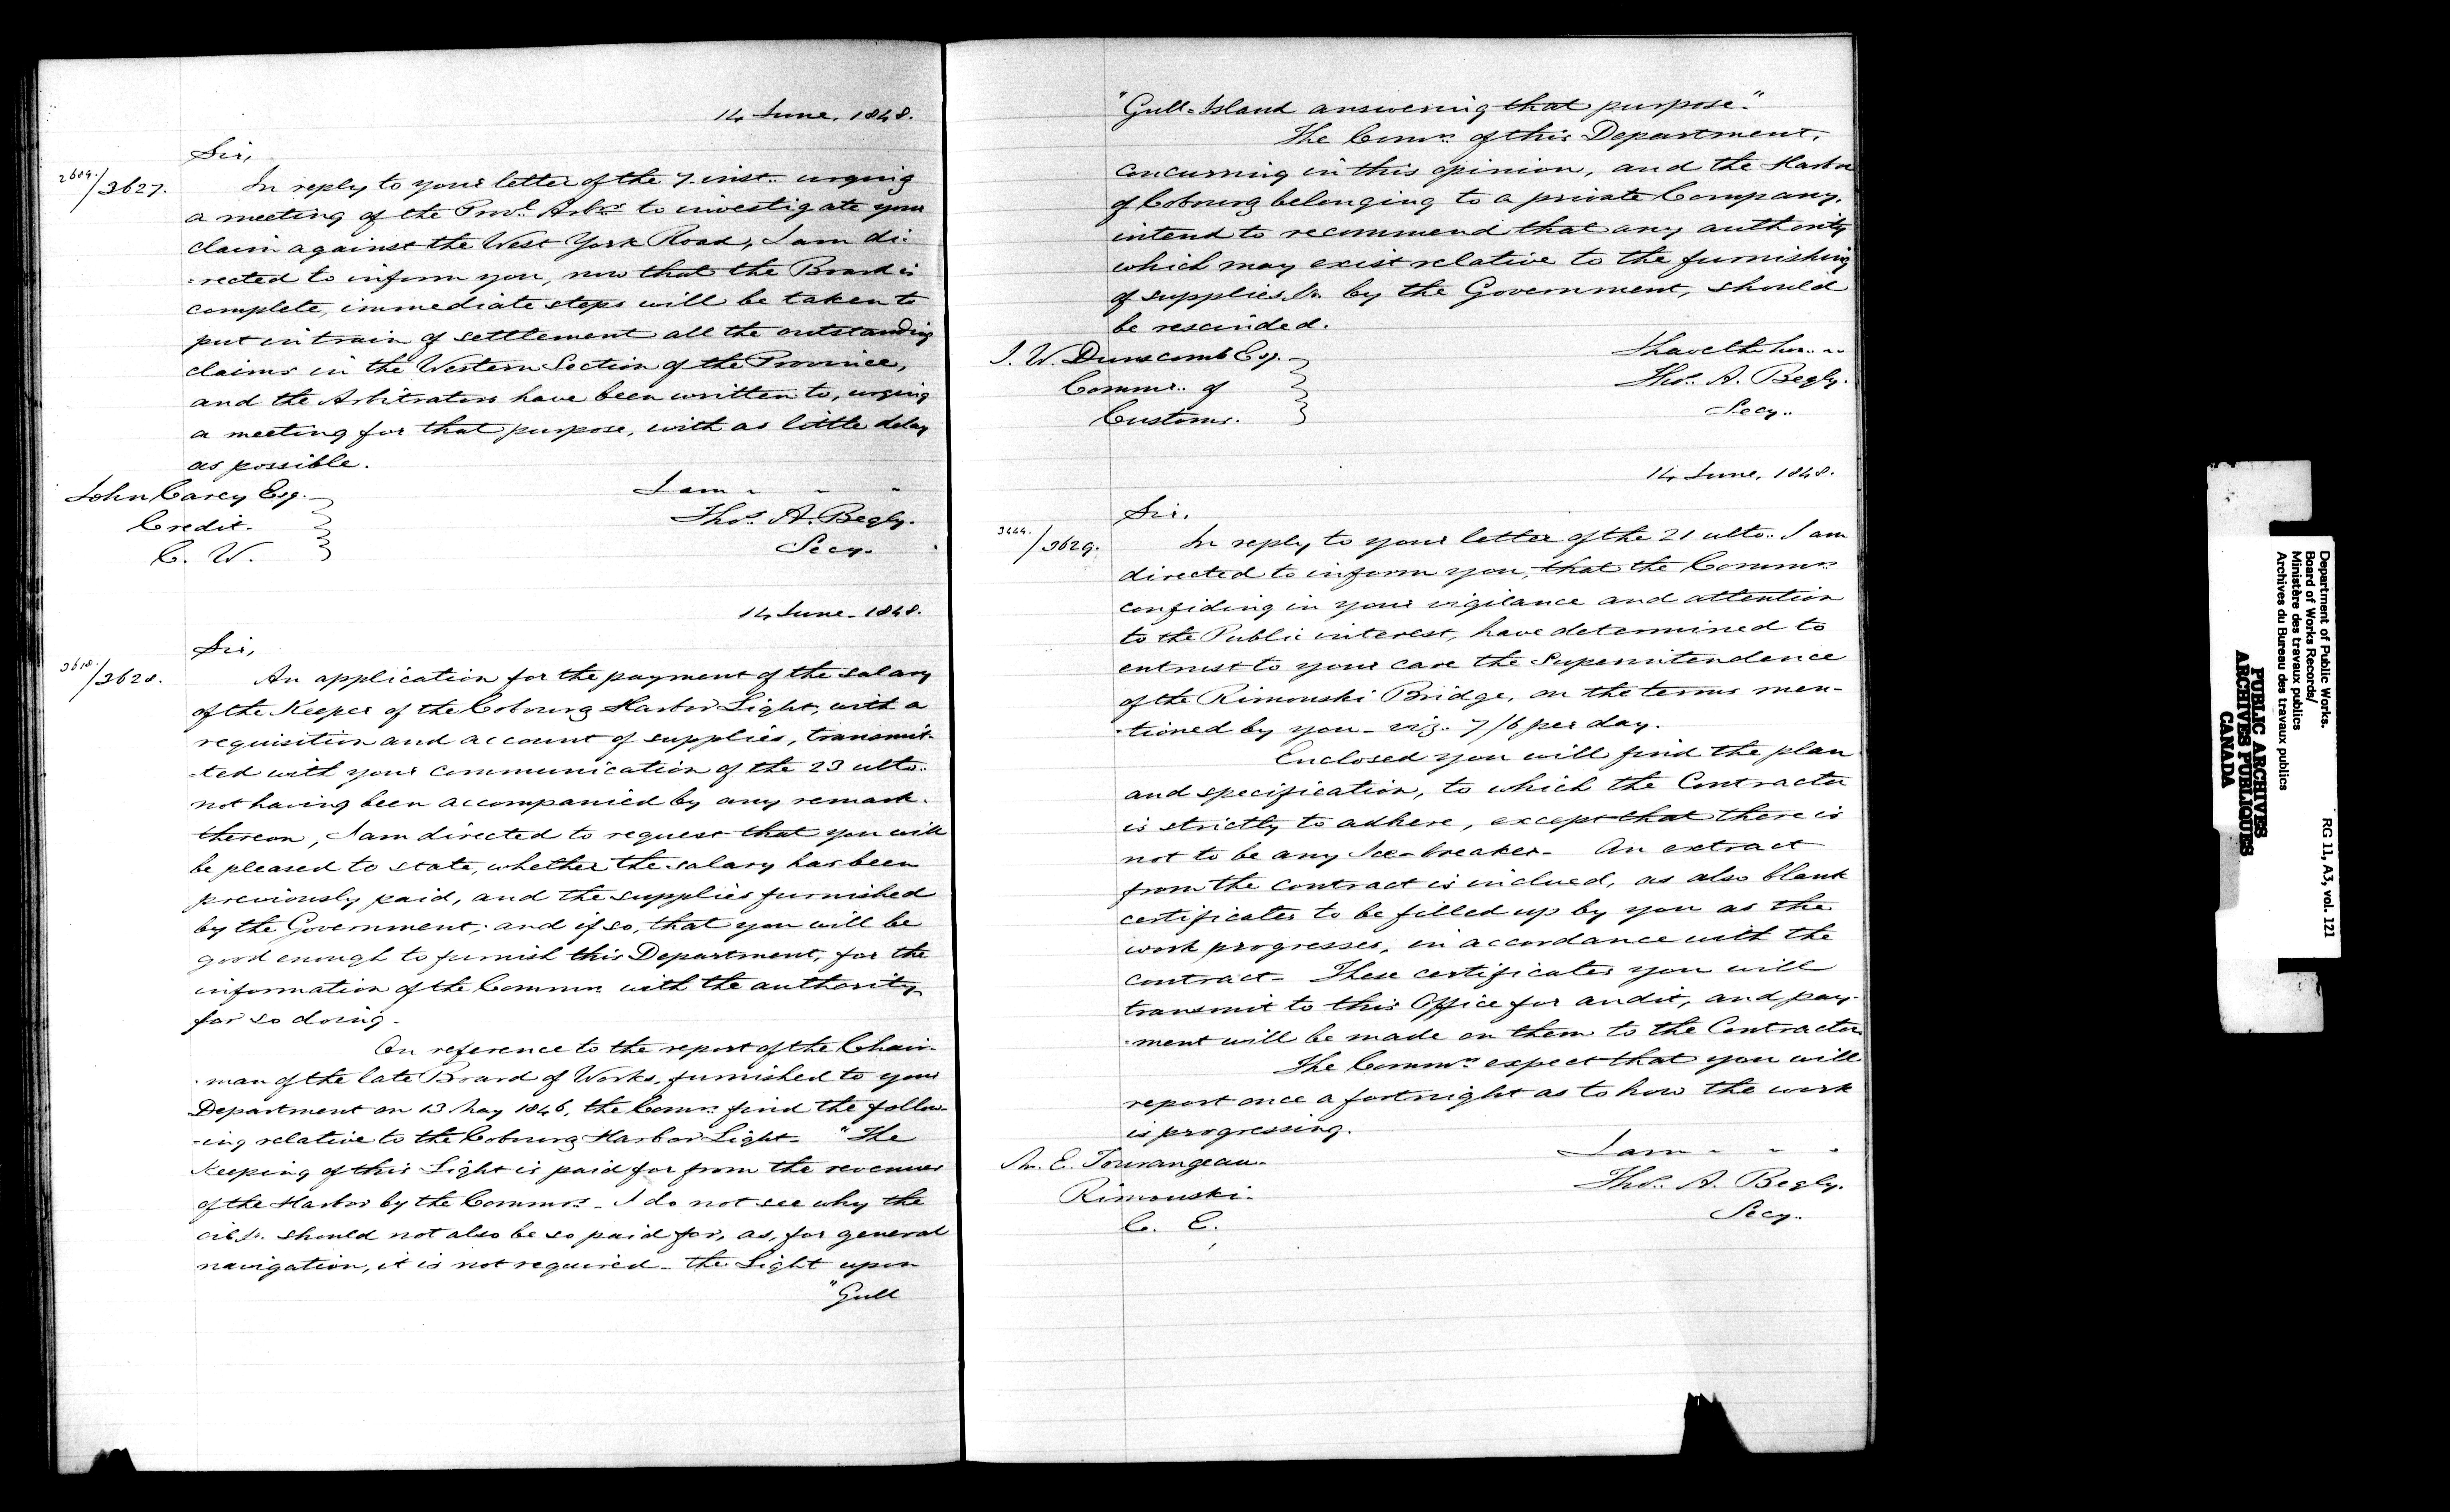 14 June, 1848.
Sir,
2604./3627.
In reply to your letter of the 7. inst. urging
a meeting of the Provl. Arbrs. to investigate your
claim against the West York Road, I am di:
:rected to inform you, now that the Board is
complete, immediate steps will be taken to
put in train of settlement all the outstanding
claims in the Western Section of the Province,
and the Arbitrators have been written to, urging
a meeting for that purpose, with as little delay
as possible.
I am " " "
Thos. A. Begly.
Secy.
John Carey Esq.
Credit.
C. W.
14 June. 1848.
Sir,
3618./3628.
An application for the payment of the salary
of the Keeper of the Cobourg Harbor Light, with a
requisition and account of supplies, transmit-
-ted with your communication of the 23 ulto.
not having been accompanied by any remark.
thereon, I am directed to request that you will
be pleased to state, whether the salary has been
previously paid, and the supplies furnished
by the Government; and if so, that you will be
good enough to furnish this Department, for the
information of the Commrs. with the authority
for so doing.
On reference to the report of the Chair-
-man of the late Board of Works, furnished to your
Department on 13 May 1846, the Comrs. find the follow-
-ing relative to the Cobourg Harbor Light. "The
Keeping of this Light is paid for from the revenues
of the Harbor by the Commrs. - I do not see why the
oil &c. should not also be so paid for, as, for general
navigation, it is not required - the Light upon
"Gull
"Gull-Island answering that purpose."
The Comrs. of this Department,
concurring in this opinion, and the Harbor
of Cobourg belonging to a private Company,
intend to recommend that any authority
which may exist relative to the furnishing
of supplies &c. by the Government, should
be rescinded.
I have the hor. "
Thos. A. Begly.
Secy.
J. W. Dunscomb Esq.
Commr. of
Customs.
14 June, 1848.
Sir.
3444./3629.
In reply to your letter of the 21 ulto. I am
directed to inform you, that the Commrs.
confiding in your vigilance and attention
to the Public interest, have determined to
entrust to your care the Superintendence
of the Rimouski Bridge, on the terms men-
-tioned by you - viz. 7/6 per day.
Enclosed you will find the plan
and specification, to which the Contractor
is strictly to adhere, except that there is
not to be any Ice-breaker - An extract
from the contract is inclued, as also blank
certificates to be filled up by you as the
work progresses, in accordance with the
contract - These certificates you will
transmit to this Office for audit, and pay-
-ment will be made on them to the Contractor
The Commrs. expect that you will
report once a fortnight as to how the work
is progressing.
I am " " "
Thos. A. Begly.
Secy.
E. Tourangeau.
Rimouski.
C. E.
Department of Public Works.
Board of Works Records/
Ministère des travaux publics
Archives du Bureau des travaux publics
RG 11, A3, vol. 121
PUBLIC ARCHIVES
ARCHIVES PUBLIQUES
CANADA